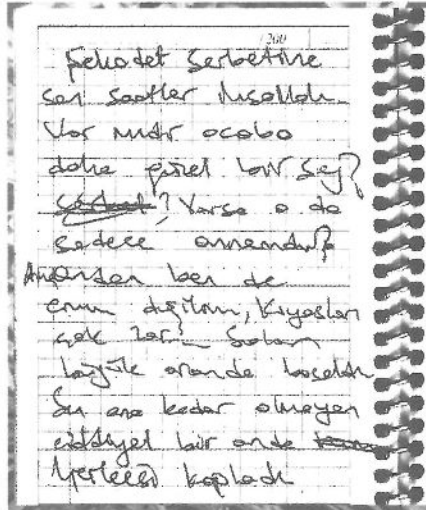 200
Şehadet Şerbetine
son saatler inşallah
Var mıdır acaba
daha güzel bir şey?
? Varsa o da
sadece annemdir?
Ama ondan ben de
emin değilim, Kıyaslama
çok zor? Salon
büyük oranda boşaldı
Şu ana kadar olmayan
ciddiyet bir anda
herkesi kapladı